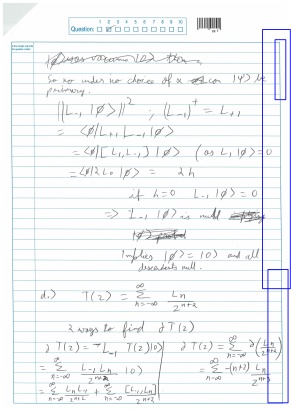 Question: 1 2 3 4 5 6 7 8 9 10
So no under no choice of α can |ψ⟩ be
primary.
||L₋₁ |φ⟩||² ; (L₋₁)† = L₊₁
= ⟨φ|L₊₁ L₋₁|φ⟩
= ⟨φ|[L₁, L₋₁]|φ⟩ (as L₁|φ⟩ = 0
= ⟨φ|2L₀|φ⟩ = 2h
if h=0 L₋₁|φ⟩ = 0
⇒ L₋₁|φ⟩ is null
Implies |φ⟩ = |0⟩ and all
descendents null.
d.) T(z) = Σ_{n=-∞}^{∞} L_n / z^{n+2}
2 ways to find ∂T(z)
∂T(z) = L₋₁ T(z)|0⟩ ∂T(z) = Σ_{n=-∞}^{∞} ∂(L_n / z^{n+2})
= Σ_{n=-∞}^{∞} L₋₁ L_n / z^{n+2} |0⟩ = Σ_{n=-∞}^{∞} -(n+2) L_n /
= Σ_{n=-∞}^{∞} L_n L₋₁ / z^{n+2} + Σ_{n=-∞}^{∞} [L₋₁, L_n] / z^{n+2}